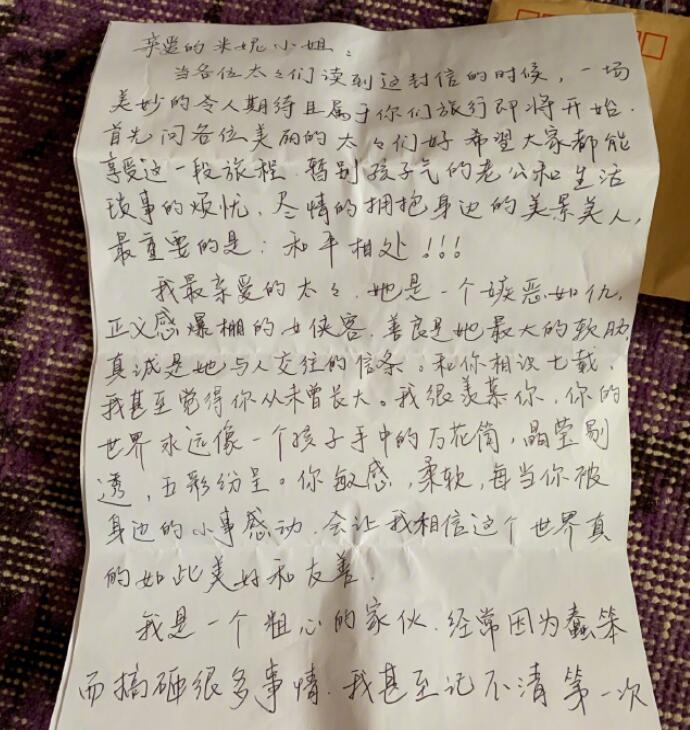 亲爱的米妮小姐:
当各位太太们读到这封信的时候,一场
美妙的令人期待且属于你们旅行即将开始.
首先问各位美丽的太太们好 希望大家都能
享受这一段旅程.暂别孩子气的老公和生活
琐事的烦忧,尽情的拥抱身边的美景美人,
最重要的是:和平相处!!!
我最亲爱的太太,她是一个嫉恶如仇,
正义感爆棚的女侠客.善良是她最大的软肋,
真诚是她与人交往的信条。和你相识七载,
我甚至觉得你从未曾长大。我很羡慕你,你的
世界永远像一个孩子手中的万花筒,晶莹剔
透,五彩纷呈。你敏感,柔软,每当你被
身边的小事感动.会让我相信这个世界真
的如此美好和友善.
我是一个粗心的家伙.经常因为蠢笨
而搞砸很多事情.我甚至记不清第一次